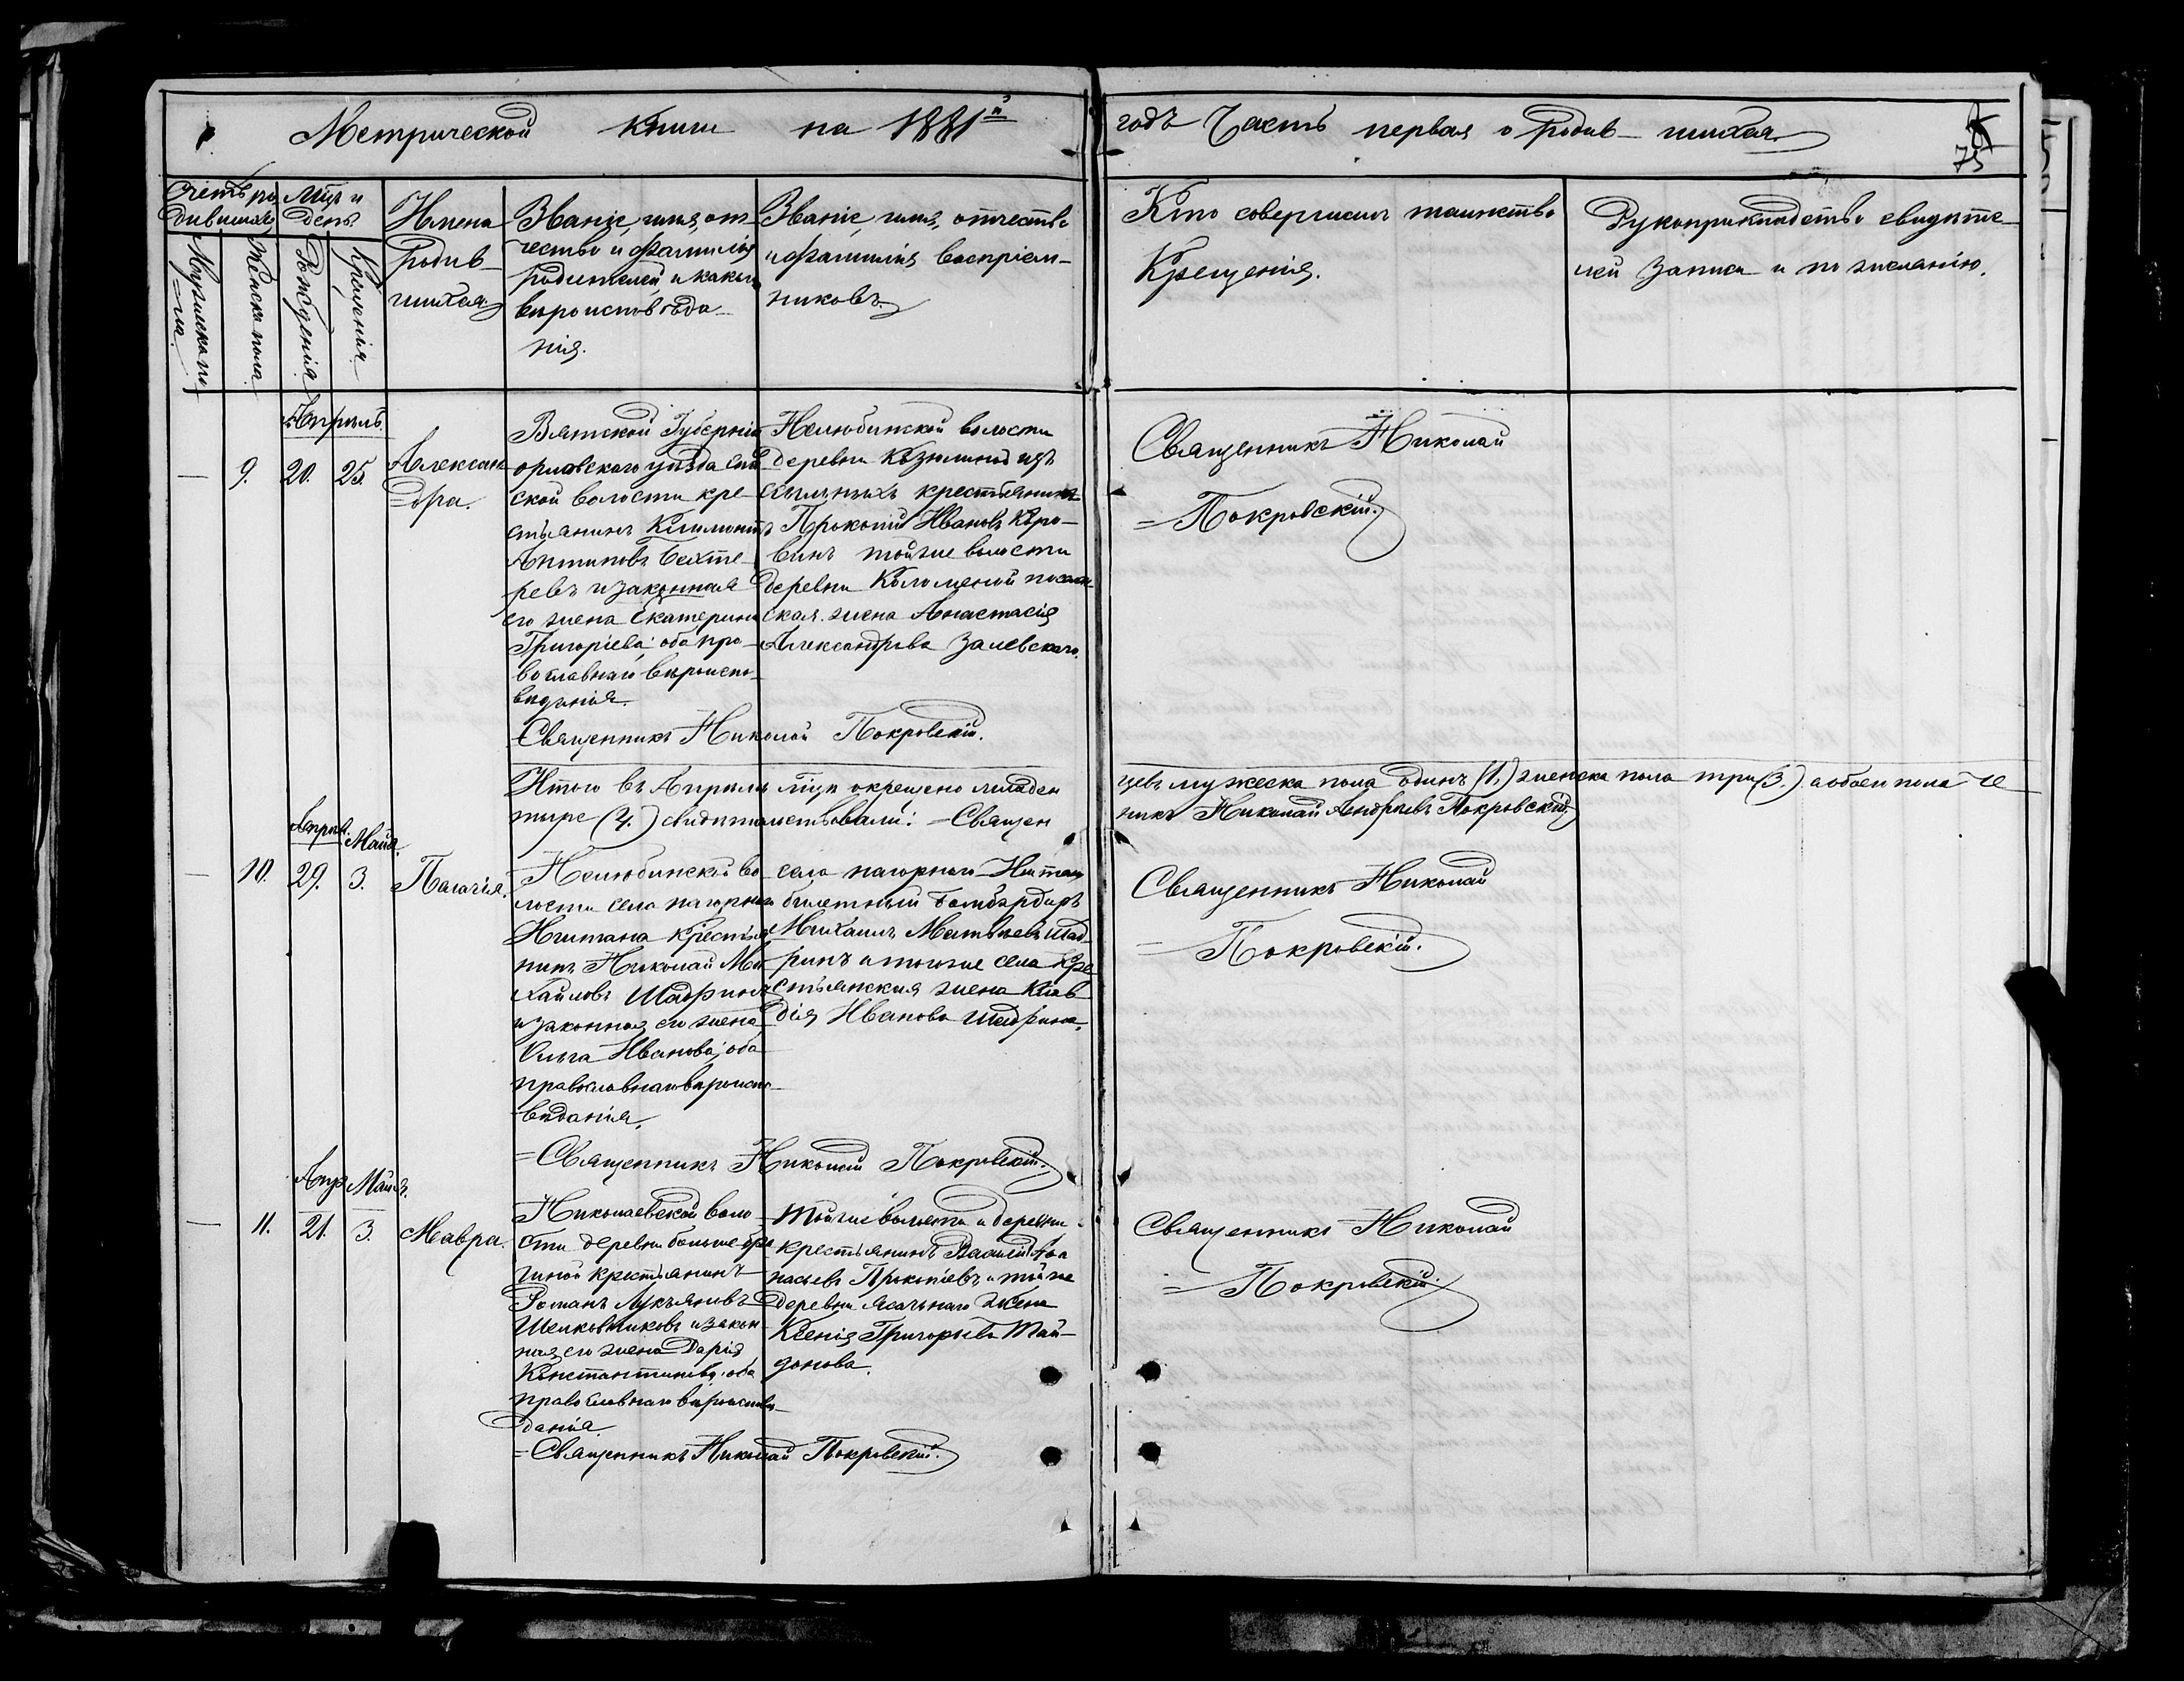 Метрической Книги на 1881й
годъ Часть первая о родив-шихся
75
Счетъ ро
дившихся
Мцъ и
день
Мужеска по
=ла.
Женска пола
Рожденія
Крещенія
Имена
Родив-
шихся
Званіе, имя, от
чество и фамилія
родителей, и какого
вѣроисповѣда
нія.
Званіе, имя, отчество
и фамилія воспріем-
никовъ.
Кто совершилъ таинство
Крещенія.
Рукоприкладство свидѣте
лей записи и по желанію.
Апрѣль
— 9. 20. 25.
Алексан
=дра.
Вятской Губерніи
орловскаго уѣзда
ской волости кре-
стьянинъ Климонтъ
Антиповъ Бехте-
ревъ и законная
его жена Екатерина
Григоріева, оба пра-
вославнаго вѣроиспо-
вѣданія.
=Священникъ Николай Покровскій.
Нелюбинской волости
деревни Кѣзюлиной изъ
ссыльныхъ крестьянинъ
Прокопій Ивановъ Коро-
винъ тойже волости
деревни Коломиной
ская жена Анастасія
Александрова Залевскаго.
Священникъ Николай
=Покровскій.
Итого въ Апрѣлѣ мцѣ окрещено младен
цевъ мужеска пола одинъ (1.) женска пола три (3.) а обоего пола че
тыре (4.) свидѣтельствовали: =Священ
никъ Николай Андреевъ Покровскій.
Апрѣл. Майя.
— 10. 29. 3. Палагія.
Нелюбинской во
лости села нагорнаго
Иштана Крестья
нинъ Николай Ми
хайловъ Шадринъ
и законная его жена
Ольга Иванова, оба
православнаго вѣроиспо-
вѣданія.
=Священникъ Николай Покровскій.
села нагорнаго Иштана
билетный бомбардиръ
Михаилъ Матвѣевъ Шад
ринъ и тогоже села Кре
стьянская жена Клав
дія Иванова Шадрина.
Священникъ Николай
=Покровскій.
Апр. Майя.
— 11. 21. 3. Мавра.
Николаевской воло
сти деревни
чиной крестьянинъ
Романъ Лукьяновъ
Шелковниковъ и закон
ная его жена Дарія
Константинова, оба
православнаго вѣроисповѣ
данія.
=Священникъ Николай Покровскій.
Тойже волости и деревни
крестьянинъ Василій Афа
насьевъ Прокопьевъ и тойже
деревни ясачнаго жена
Ксенія Григорьева Май-
данова.
Священникъ Николай
=Покровскій.